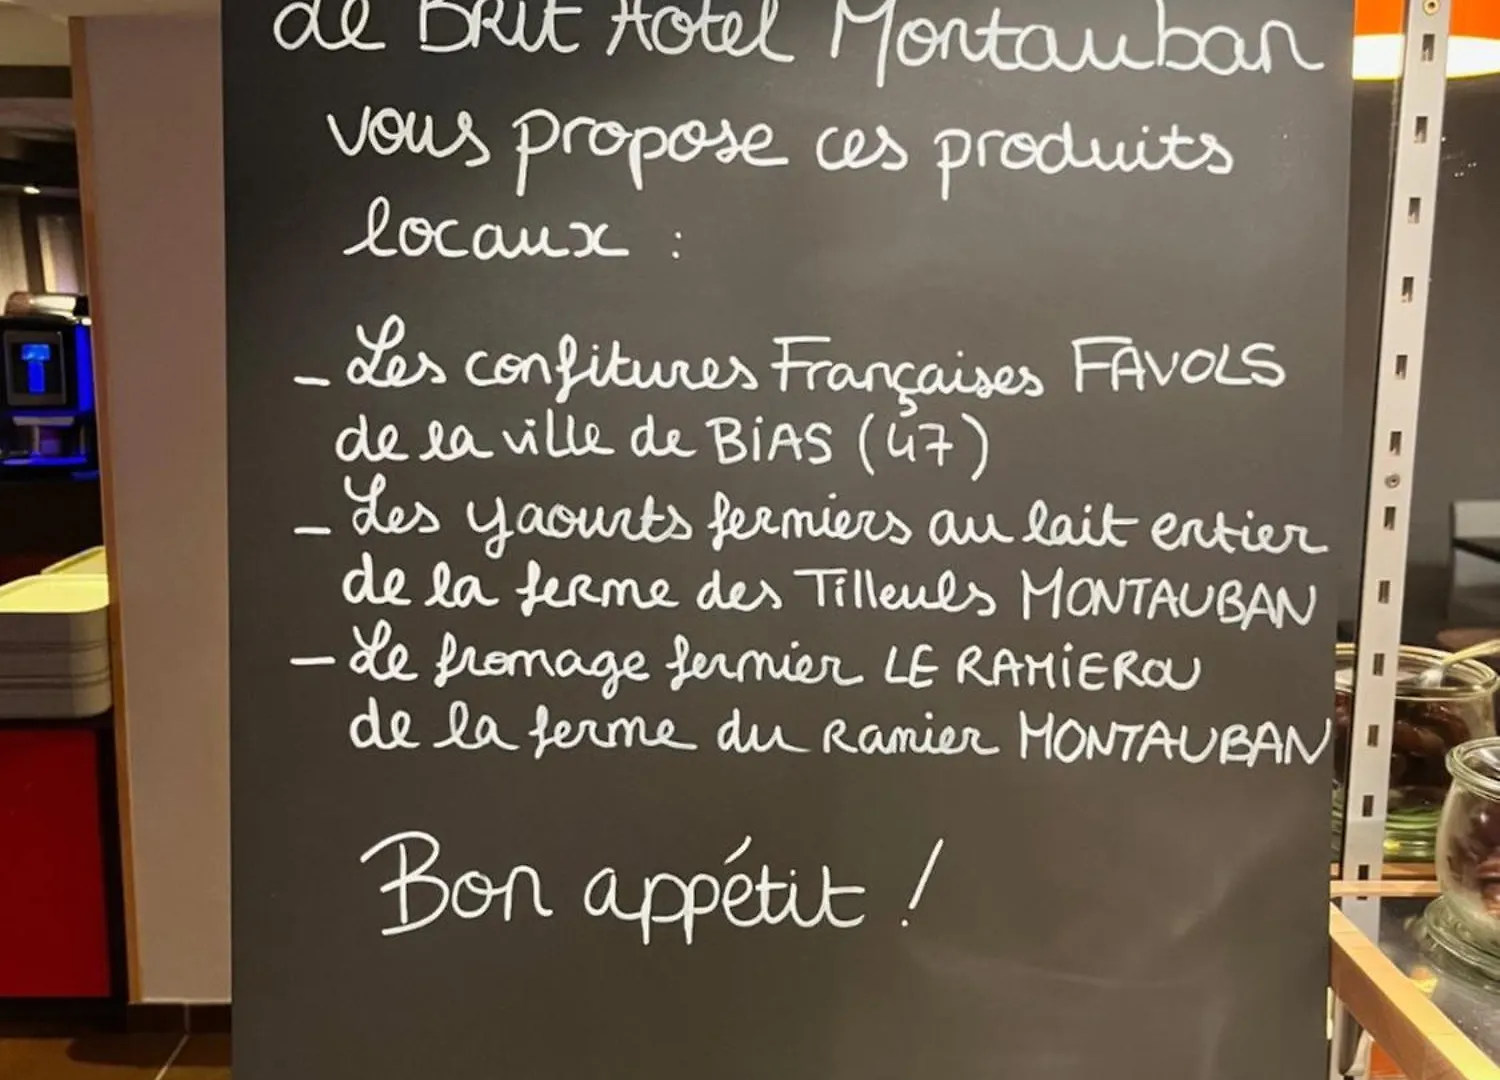 de Brit Hotel Montauban
vous propose ces produits
locaux :
- Les confitures Françaises FAVOLS
de la ville de BIAS (47)
- Les yaourts fermiers au lait entier
de la ferme des Tilleuls MONTAUBAN
- Le fromage fermier LE RAMIEROU
de la ferme du Ramier MONTAUBAN
Bon appétit !